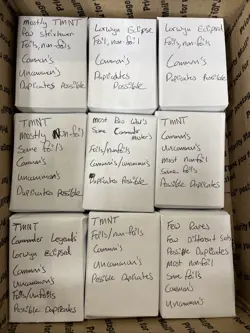 Mostly TMNT
Few strixhaven
Foils, non-foils
Common's
Uncommon's
Duplicates Possible
Lorwyn Eclipse
Foil, non-foil
Common's
Uncommon's
Duplicates
Possible
Lorwyn Eclipsed
Foils, non-foils
Common's
Uncommon's
Duplicates Possible
TMNT
Mostly Non-foil
Some foil's
Common's
Uncommon's
Duplicates Possible
Most
Some Commander
Master's
Foils/nonfoils
Common's/uncommon's
Duplicates Possible
TMNT
Common's
Uncommon's
Most nonfoil
Some foils
Possible Duplicates
TMNT
Commander Legends
Lorwyn Eclipsed
Common's
Uncommon's
Foils/nonfoils
Possible Duplicates
TMNT
Foils/non-foils
Common's
Uncommon's
Possible Duplicates
Few Rares
Few Different Sets
Possible Duplicates
Most nonfoil
Some foils
Common's
Uncommon's